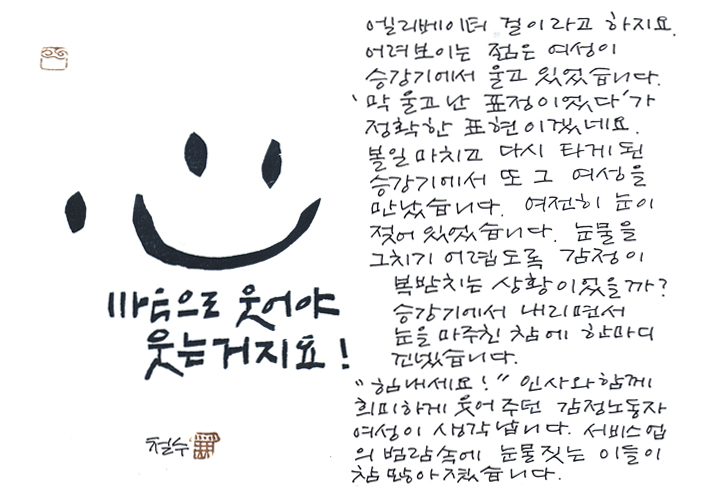 마음으로 웃어야
웃는거지요!
철수
엘리베이터 걸이라고 하지요.
어려보이는 젊은 여성이
승강기에서 울고 있었습니다.
'막 울고 난 표정이었다'가
정확한 표현이겠네요.
볼일 마치고 다시 타게 된
승강기에서 또 그 여성을
만났습니다. 여전히 눈이
젖어 있었습니다. 눈물을
그치기 어렵도록 감정이
복받치는 상황이었을까?
승강기에서 내리면서
눈을 마주친 참에 한마디
건넸습니다.
"힘내세요!" 인사와 함께
희미하게 웃어 주던 감정노동자
여성이 생각납니다. 서비스업
의 범람속에 눈물짓는 이들이
참 많아졌습니다.